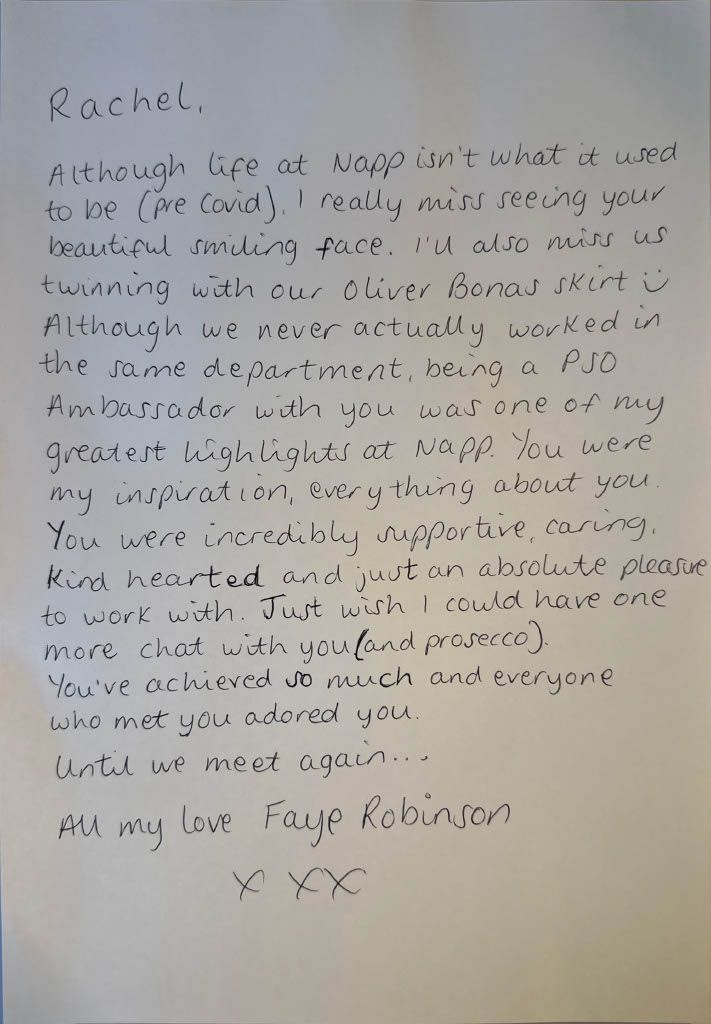 Rachel,
Although life at Napp isn't what it used
to be (pre Covid), I really miss seeing your
beautiful smiling face. I'll also miss us
twinning with our Oliver Bonas skirt :)
Although we never actually worked in
the same department, being a PSO
Ambassador with you was one of my
greatest highlights at Napp. You were
my inspiration, everything about you.
You were incredibly supportive, caring,
kind hearted and just an absolute pleasure
to work with. Just wish I could have one
more chat with you (and prosecco).
You've achieved so much and everyone
who met you adored you.
Until we meet again...
All my love Faye Robinson
x xx